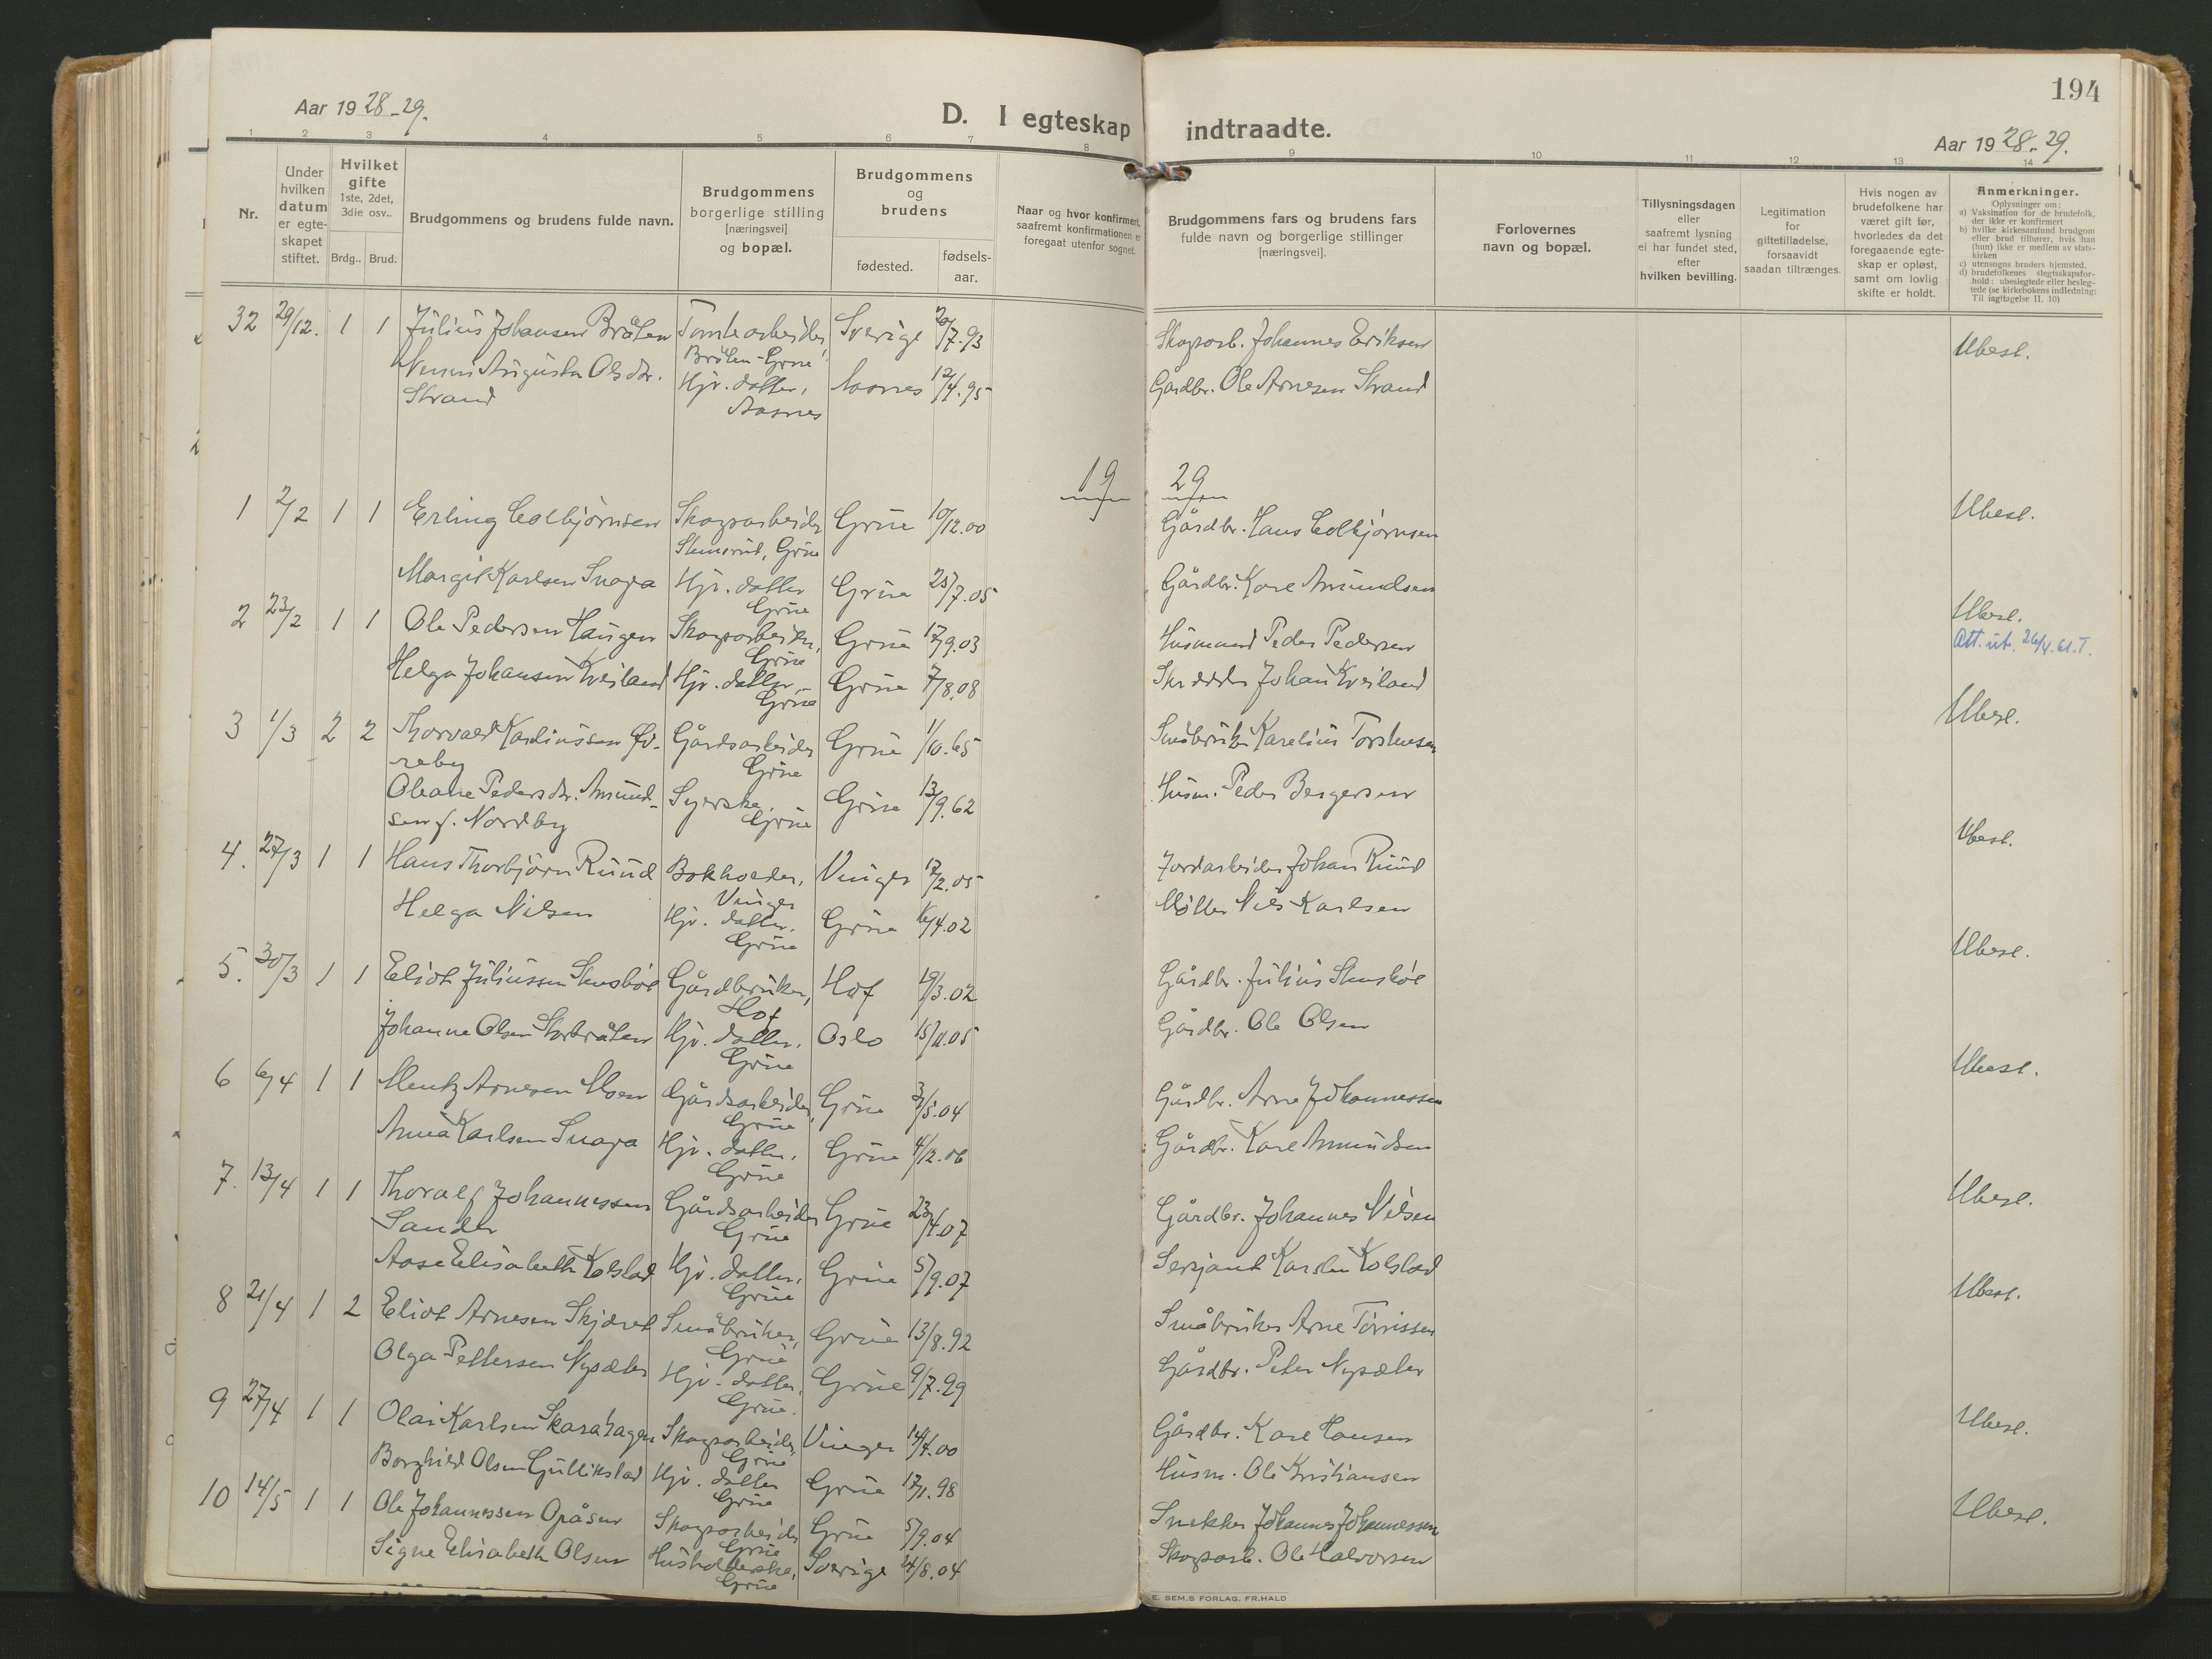 194
Aar 1928-29.
D. I egteskap indtraadte.
Aar 1928-29.
1 2 3 4 5 6 7 8 9 10 11 12 13 14
Nr.
Under hvilken datum er egte-skapet stiftet.
Hvilket gifte 1ste, 2det, 3die osv..
Brdg.. Brud.
Brudgommens og brudens fulde navn.
Brudgommens borgerlige stilling [næringsvei] og bopæl.
Brudgommens og brudens
fødested.
fødsels-aar.
Naar og hvor konfirmert, saafremt konfirmationen er foregaat utenfor sognet.
Brudgommens fars og brudens fars fulde navn og borgerlige stillinger [næringsvei].
Forlovernes navn og bopæl.
Tillysningsdagen eller saafremt lysning ei har fundet sted, efter hvilken bevilling.
Legitimation for giftetilladelse, forsaavidt saadan tiltrænges.
Hvis nogen av brudefolkene har været gift før, hvorledes da det foregaaende egte-skap er opløst, samt om lovlig skifte er holdt.
Anmerkninger.
Oplysninger om:
a) Vaksination for de brudefolk, der ikke er konfirmert
b) hvilke kirkesamfund brudgom eller brud tilhører, hvis han (hun) ikke er medlem av stats-kirken
c) utensogns bruders hjemsted.
d) brudefolkenes slegtsskapsfor-hold: ubeslegtede eller besleg-tede (se kirkebokens indledning: Til iagttagelse II. 10)
32 29/12. 1 1 Julius Johansen Bråten Tomtearbeider Sverige 20/7.93 Skogsarb. Johannes Eriksen Ubesl.
Bråten - Grue
Augusta Olsdtr. Hjv. datter, Aasnes 12/4.95 Gårdbr. Ole Arnesen Strand
Strand Aasnes
19 29
1 2/2 1 1 Erling Colbjørnsen Skogsarbeider Grue 10/12.00 Gårdbr. Hans Colbjørnsen Ubesl.
Skinsrud, Grue
Margit Karlsen Snapa Hjv. datter Grue 25/7.05 Gårdbr. Karl Amundsen
Grue
2 23/2 1 1 Ole Pedersen Haugen Skogsarbeider, Grue 17/9.03 Husmand Peder Pedersen Ubesl.
Grue Att. ut. 26/4.61.T.
Helga Johansen Kveiland Hjv. datter, Grue 7/8.08 Skrædder Johan Kveiland
Grue
3 1/3 2 2 Thorvald Karelinssen Øv- Gårdsarbeider Grue 1/10.65 Småbruker Karelius Torstensen Ubesl.
reby Grue
Oleane Pedersdtr. Amund- Syerske. Grue 13/9.62 Husm. Peder Bergersen
sen f. Nordby Grue
4. 27/3 1 1 Hans Thorbjørn Ruud Bokholder, Vinger 17/2.05 Jordarbeider Johan Ruud Ubesl.
Vinger
Helga Nilsen Hjv. datter, Grue 16/4.02 Møller Nils Karlsen
Grue
5. 30/3 1 1 Eliot Juliussen Gårdbruker, Hof 19/3.02 Gårdbr. Julius Ubesl.
Hof
Johanne Olsen Storbråten Hjv. datter, Oslo 15/11.05 Gårdbr. Ole Olsen
Grue
6 6/4 1 1 Mentz Arnesen Moen Gårdsarbeider, Grue 3/5.04 Gårdbr. Arne Johannessen Ubesl.
Grue
Anna Karlsen Snapa Hjv. datter, Grue 4/12.06 Gårdbr. Karl Amundsen
Grue
7. 13/4 1 1 Thoralf Johannessen Gårdsarbeider Grue 23/4.07 Gårdbr. Johannes Nilsen Ubesl.
Sander Grue
Aase Elisabeth Kolstad Hjv. datter, Grue 5/9.07 Sersjant Karsten Kolstad
Grue
8 21/4 1 2 Eliot Arnesen Skjæret Småbruker, Grue 13/8.92 Småbruker Arne Torrissen Ubesl.
Grue
Olga Pettersen Nysæter Hjv. datter, Grue 9/7.99 Gårdbr. Peter Nysæter
Grue.
9 27/4 1 1 Olai Karlsen Skarahagen Skogsarbeider, Vinger 14/4.00 Gårdbr. Karl Hansen Ubesl.
Grue
Borghild Olsen Gullikstad Hjv. datter Grue 17/1.98 Husm. Ole Kristiansen
Grue
10 14/5 1 1 Ole Johannessen Opåsen Skogsarbeider Grue 5/9.04 Snekker Johannes Johannessen Ubesl.
Grue
Signe Elisabeth Olsen Husholderske, Sverige 24/8.04 Skogsarb. Ole Halvorsen
Grue
E. SEM.S FORLAG. FR.HALD